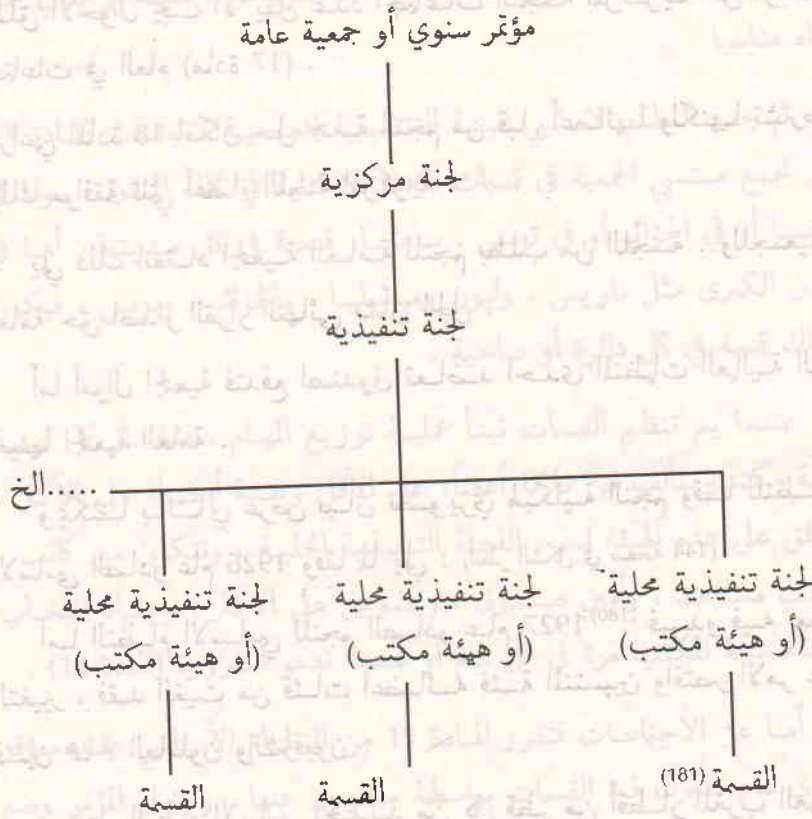 مؤتمر سنوي أو جمعية عامة
لجنة مركزية
لجنة تنفيذية
.....الخ
لجنة تنفيذية محلية لجنة تنفيذية محلية لجنة تنفيذية محلية
(أو هيئة مكتب) (أو هيئة مكتب) (أو هيئة مكتب)
القسمة (181) القسمة القسمة